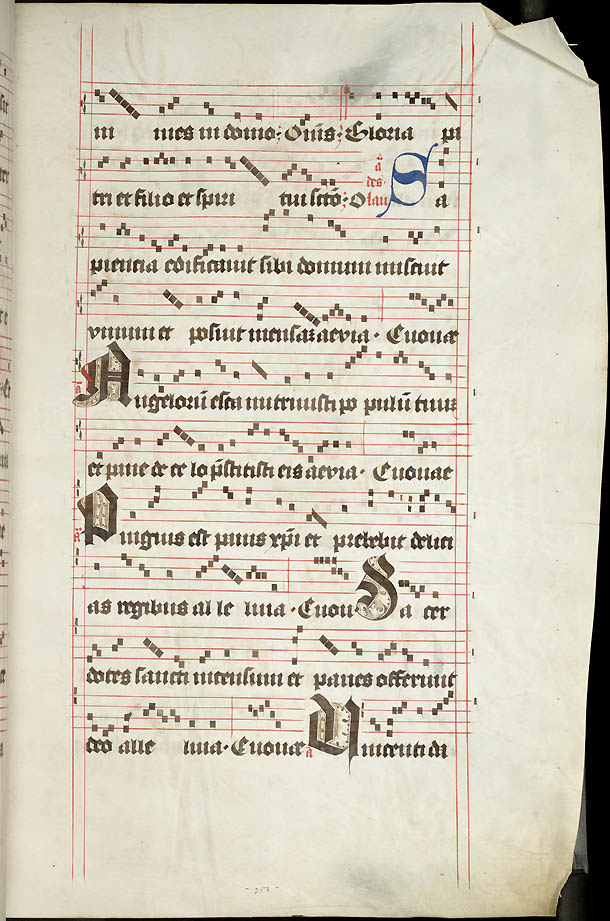 ni mes in domo: Om̄s: Gloria pi
tri et filio et spiri tui sctō: O lau
des. ā S a
piencia edificavit sibi domum miscuit
vinum et posuit mensaz aevia · Euouae
Angelorū esca nutriuisti po pulū tuuz
et pane de ce lo p̄stitisti eis aevia · Euouae
Pinguis est panis xp̄i et prebebit delici
as regibus al le luia · Euou Sa cer
dotes sancti incensum et panes offerunt
deo alle luia · Euouae a Uincenti da
- 253 -